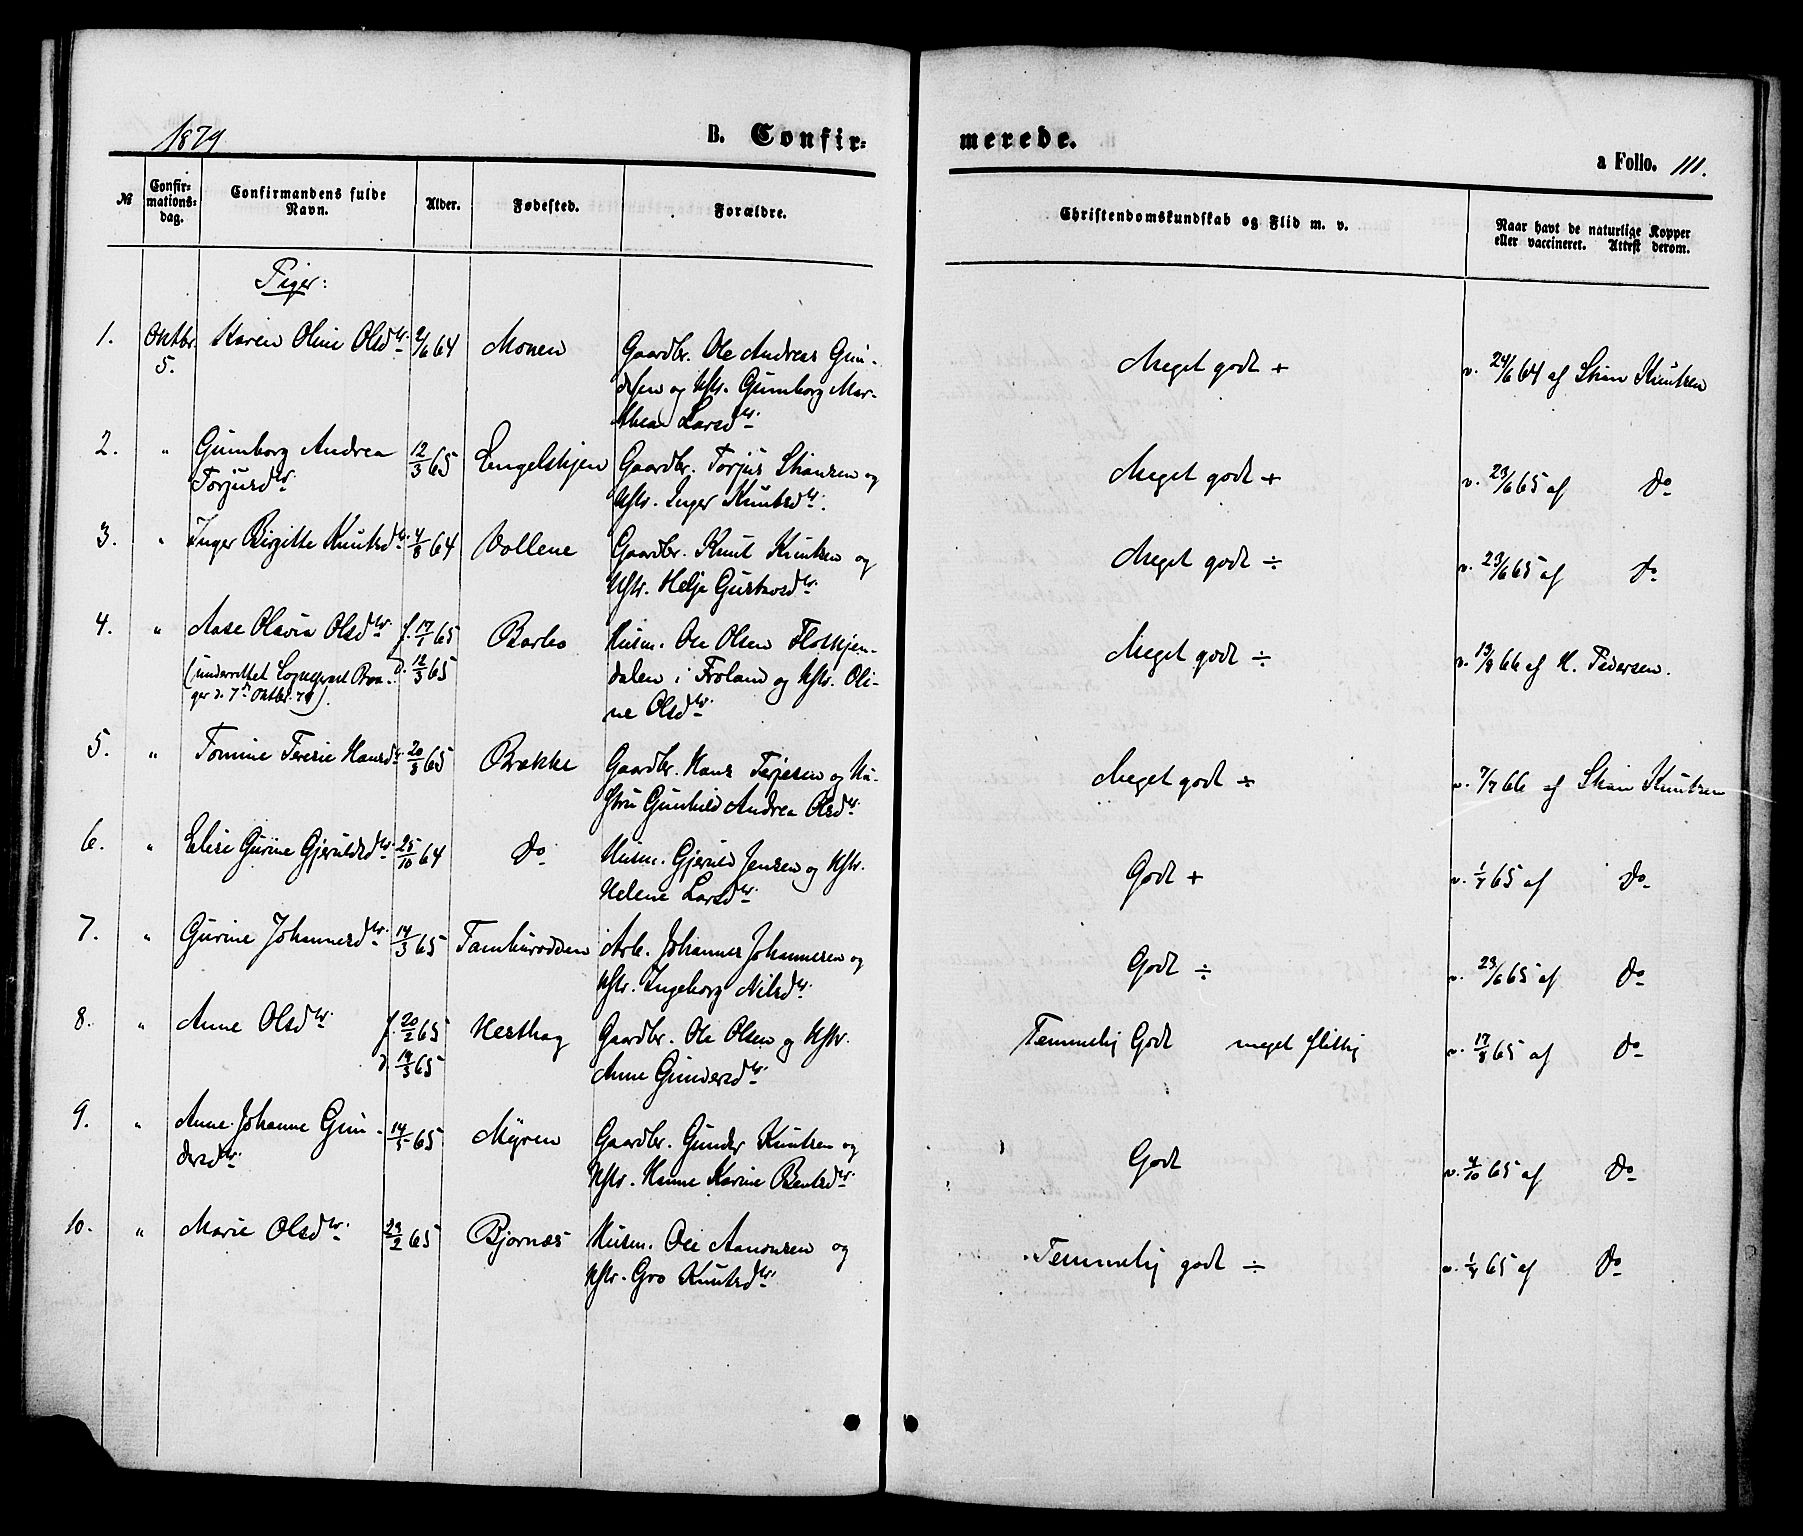 1879
B. Confir= merede.
a Folio. 111.
№
Confir= mations= dag.
Confirmandens fulde Navn.
Alder.
Fødested.
Forældre.
Christendomskundskab og Flid m. v.
Naar havt de naturlige Kopper eller vaccineret. Attest derom.
Piger:
1. Oktbr. 5. Karen Oline Olsdtr. 2/6 64 Monen Gaardbr. Ole Andreas Gun- Meget godt + v. 24/6 64 af Stian Knutsen
dersen og Hstr. Gunborg Mar-
thea Larsdtr.
2. " Gunborg Andrea 12/3 65 Engelskjen Gaardbr. Torjus Stiansen og Meget godt + v. 23/6 65 af do
Torjusdtr. Hstr. Inger Knutsdtr.
3. " Inger Birgitte Knutsdtr. 4/8 64 Vollene Gaardbr. Knut Knutsen og Meget godt ÷ v. 23/6 65 af do
Hstr. Helje Gustavsdtr.
4. " Aase Olavia Olsdtr. f. 17/1 65 Barbo Husm. Ole Olsen Floskjen- Meget godt ÷ v. 13/8 66 af K. Pedersen.
(underrettet Sognepræst d. 12/3 65 dalen i Froland og Hstr. Oli-
ger d. 7de Oktbr. 79). ne Olsdtr.
5. " Tomine Teresie Hansdtr. 20/8 65 Brække Gaardbr. Hans Terjesen og Hu- Meget godt ÷ v. 7/7 66 af Stian Knutsen
stru Gunhild Andrea Olsdtr.
6. " Elise Gurine Gjeruldsdtr. 25/10 64 do Husm. Gjeruld Jensen og Hstr. Godt + v. 1/7 65 af do
Helene Larsdtr.
7. " Gurine Johannesdtr. 14/3 65 Tamburodden Arb. Johannes Johannesen og Godt ÷ v. 23/6 65 af do
Hstr. Ingeborg Nilsdtr.
8. " Anne Olsdtr. f. 20/2 65 Hesthag Gaardbr. Ole Olsen og Hstr. Temmelig Godt meget flittig v. 17/8 65 af do
d. 19/3 65 Anne Gundersdtr.
9. " Anne Johanne Gun- 14/5 65 Myren Gaardbr. Gunder Knutsen og Godt v. 4/10 65 af do
dersdtr. Hstr. Hanne Karine Bentsdtr.
10. " Marie Olsdtr. 23/2 65 Bjornæs Husm. Ole Aanonsen og Temmelig godt ÷ v. 1/7 65 af do
Hstr. Gro Knutsdtr.